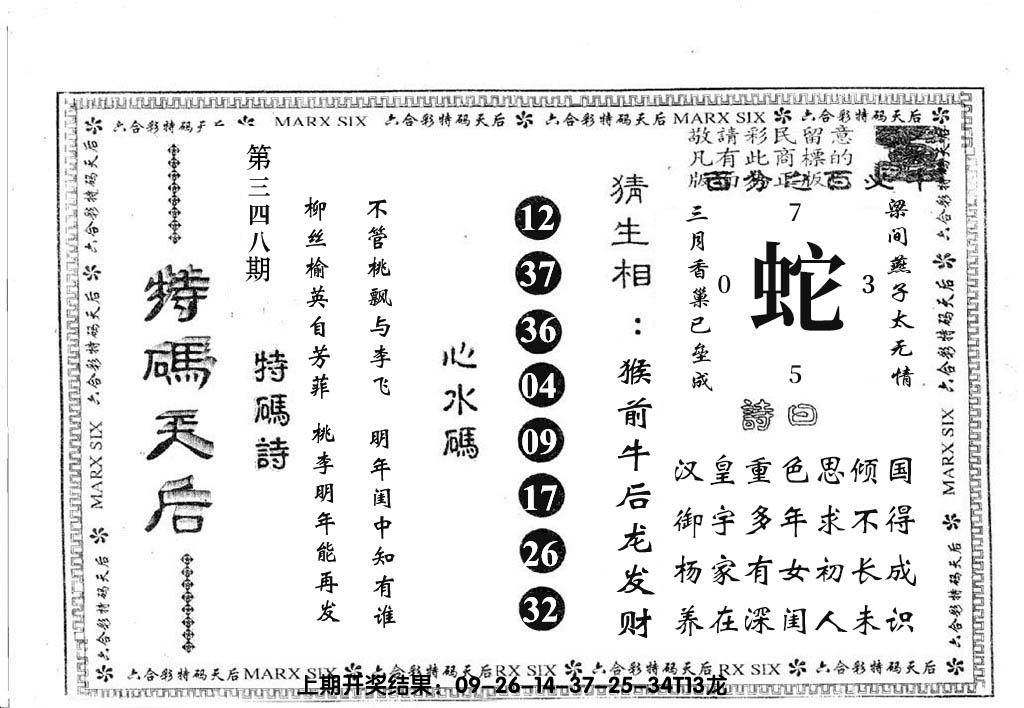 六合彩特码天后 MARX SIX 六合彩特码天后 六合彩特码天后 MARX SIX 六合彩特码天后
敬請彩民留意
凡有此商標的
版面为正版
特碼天后
第三四八期
特碼詩
柳丝榆英自芳菲 桃李明年能再发
不管桃飘与李飞 明年闺中知有谁
心水碼
12
37
36
04
09
17
26
32
猜生相：猴前牛后龙发财
三月香巢已垒成
7
0
蛇
3
5
梁间燕子太无情
詩曰
汉皇重色思倾国
御宇多年求不得
杨家有女初长成
养在深闺人未识
六合彩特码天后
MARX SIX
六合彩特码天后
六合彩特码天后
六合彩特码天后
MARX SIX
六合彩特码天后
六合彩特码天后 MARX SIX 六合彩特码天后RX SIX 六合彩特码天后 RX SIX 六合彩特码天后
上期开奖结果：09-26-14-37-25-34T13龙